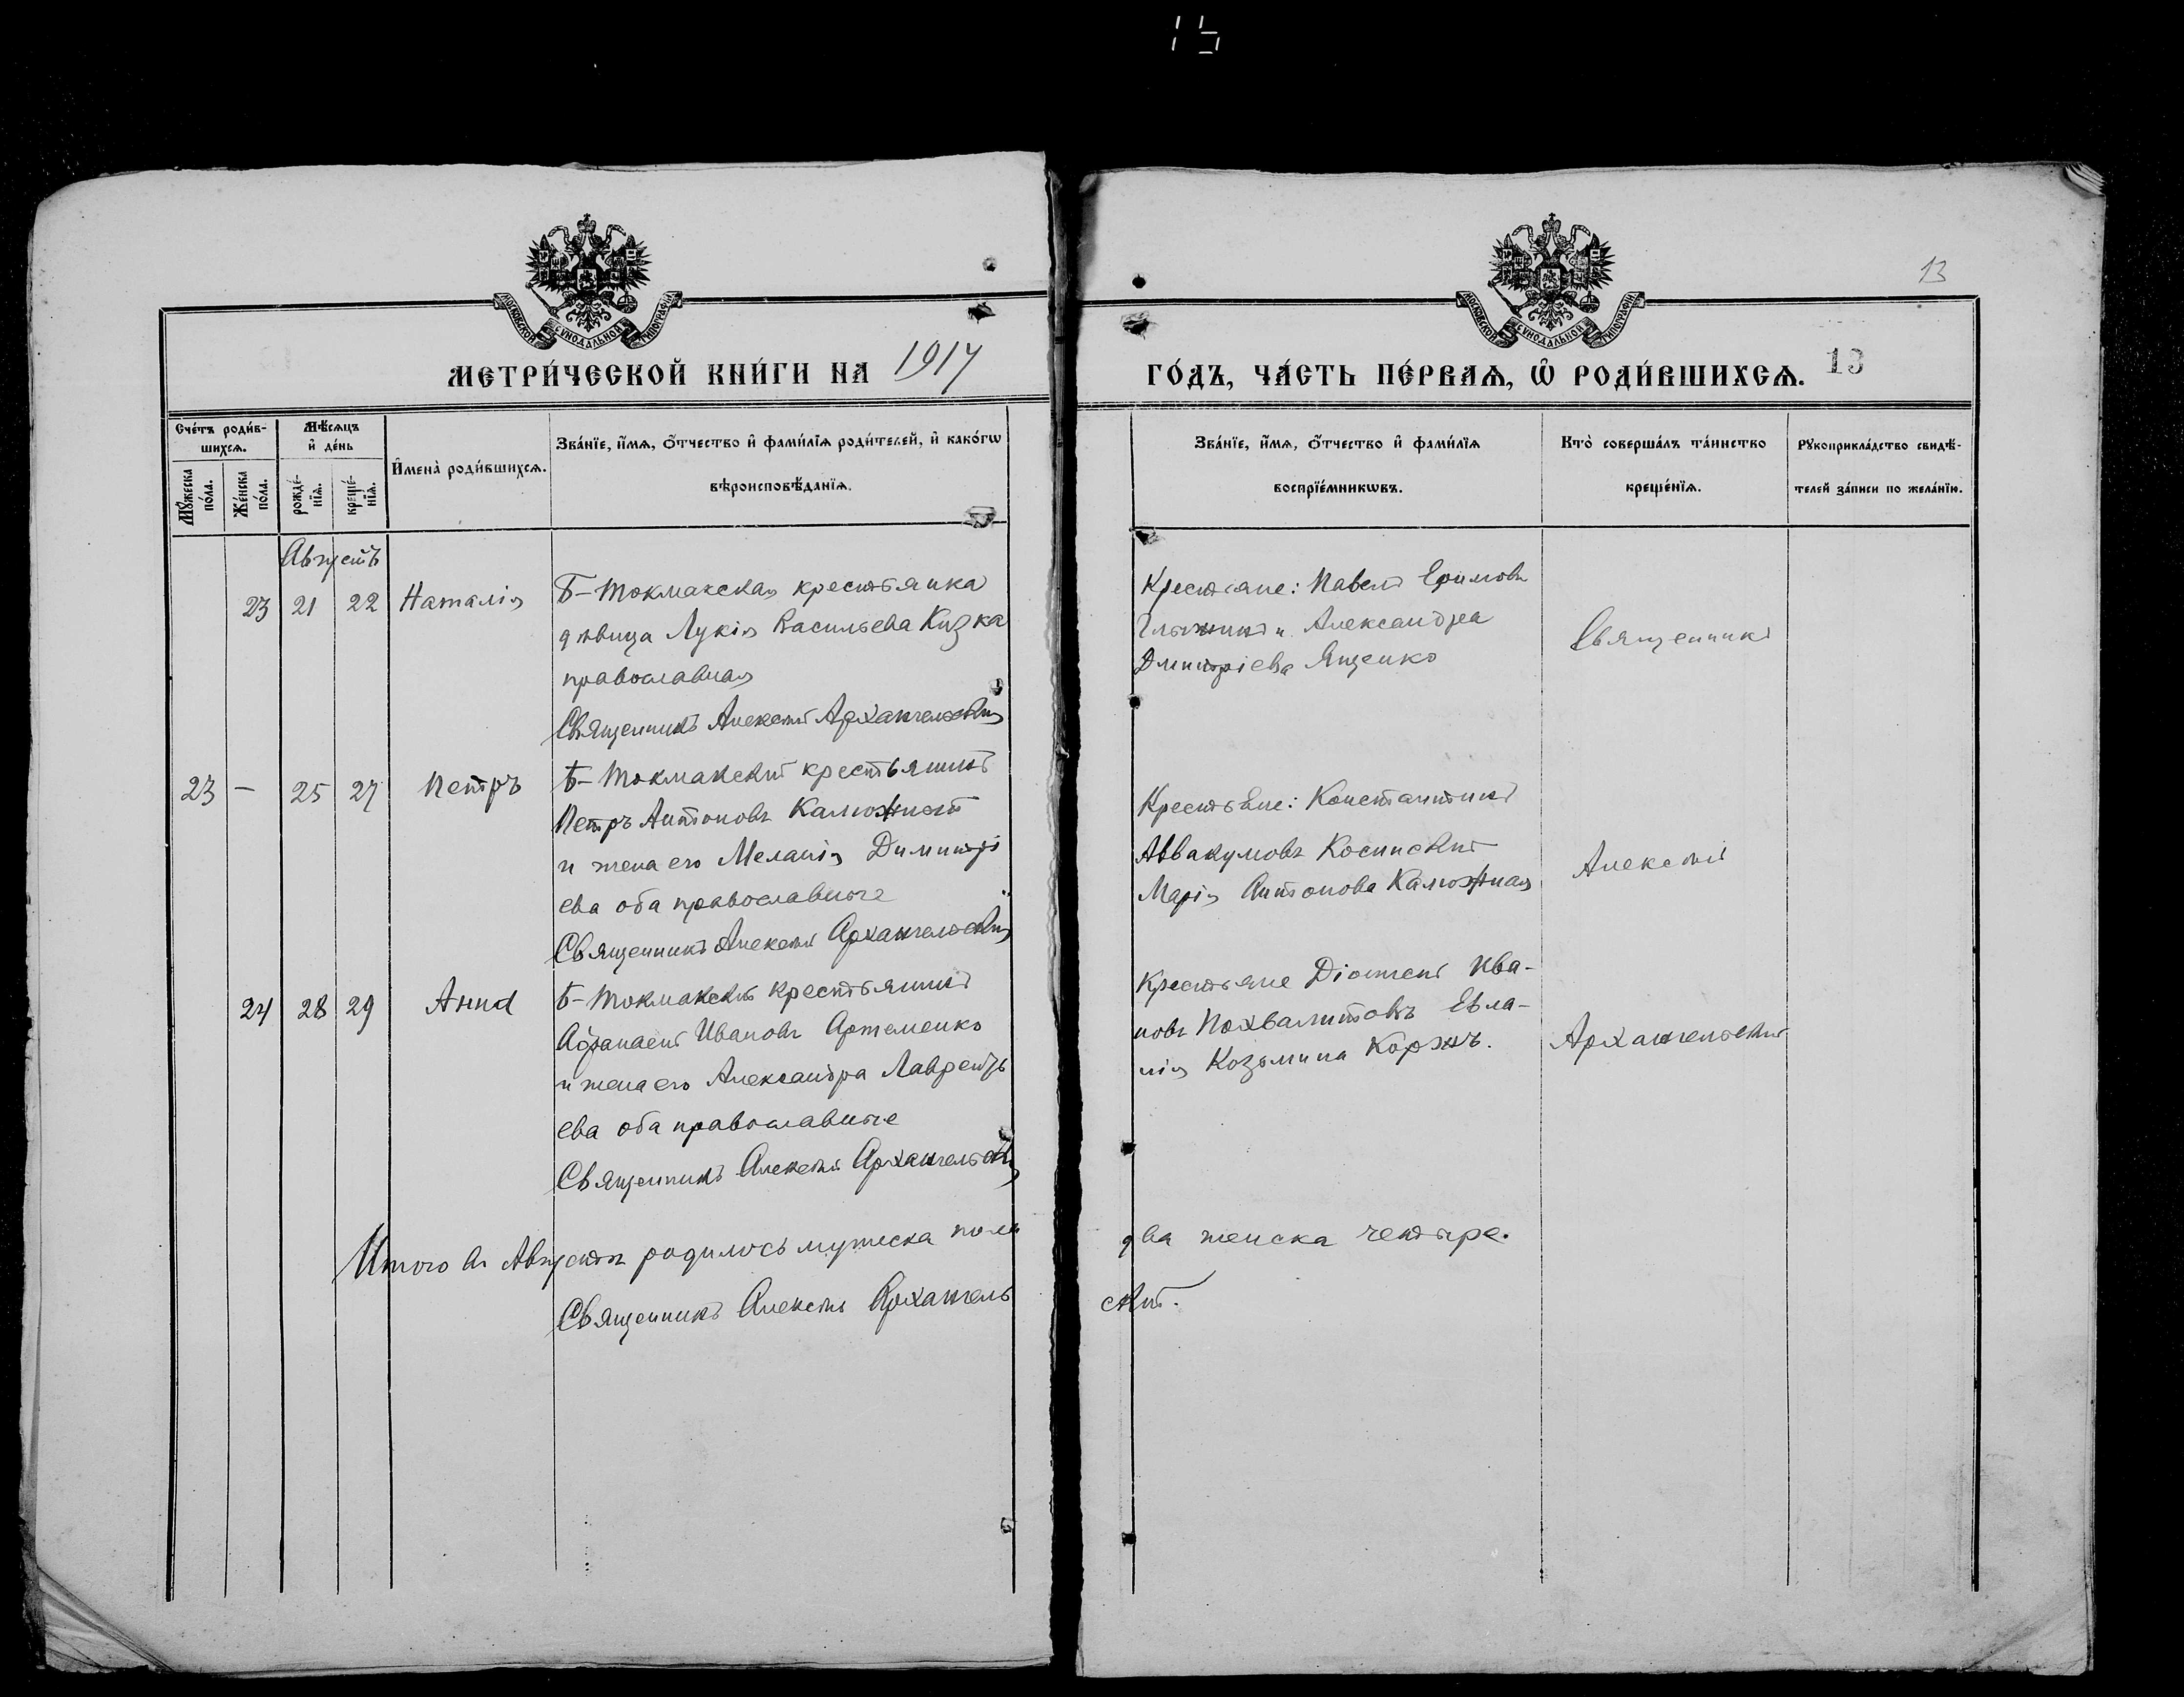 15
13
МОСКОВСКОЙ СѴНОДАЛЬНОЙ ТИПОГРАФІИ
МОСКОВСКОЙ СѴНОДАЛЬНОЙ ТИПОГРАФІИ
МЕТРИ́ЧЕСКОЙ КНИ́ГИ НА 1917
ГО́ДЪ, ЧА́СТЬ ПЕ́РВАѦ, Ѿ РОДИ́ВШИХСѦ. 13
Сче́тъ роди́в-
шихсѧ.
Мꙋ́жеска по́ла.
Же́нска по́ла.
Мѣ́сѧцъ
и҆ де́нь
рожде́-
нїѧ.
креще́-
нїѧ.
И҆мена̀ роди́вшихсѧ.
Зва́нїе, и҆́мѧ, ѻ҆́тчество и҆ фами́лїѧ роди́телей, и҆ како́гѡ
вѣроисповѣ́данїѧ.
Зва́нїе, и҆́мѧ, ѻ҆́тчество и҆ фами́лїѧ
воспрїе́мникѡвъ.
Кто̀ соверша́лъ та́инство
креще́нїѧ.
Рꙋкоприкла́дство свидѣ́-
телей за́писи по жела́нїю.
Августъ
23 21 22 Наталія
Б-Токмакская крестьянка
дѣвица Лукія Васильева Кизка
православная
Священникъ Алексѣй Архангельскій
Крестьяне: Павелъ Ефимовъ
и Александра
Дмитріева Ященко
Священникъ
23 – 25 27 Петръ
Б-Токмакскій крестьянинъ
Петръ Антоновъ Калюжный
и жена его Меланія Димитрі
ева оба православные
Священникъ Алексѣй Архангельскій
Крестьяне: Константинъ
Аввакумовъ Косинскій
Марія Антонова Калюжная
Алексѣй
24 28 29 Анна
Б-Токмакскій крестьянинъ
Афанасій Ивановъ Артеменко
и жена его Александра Лаврентъ
ева оба православные
Священникъ Алексѣй Архангельскій
Крестьяне Діомидъ Ива-
новъ Похвалитовъ Евла-
нія Козьмина Коржъ.
Архангельскій
Итого въ Августѣ родилось мужеска пола два женска четыре.
Священникъ Алексѣй Архангельскій.